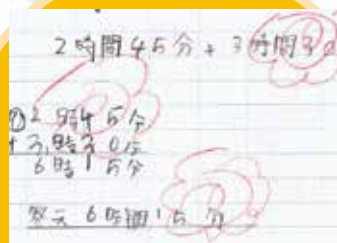 2時間45分+3時間30
①2時45分
+3時30分
6時15分
答え 6時間15分